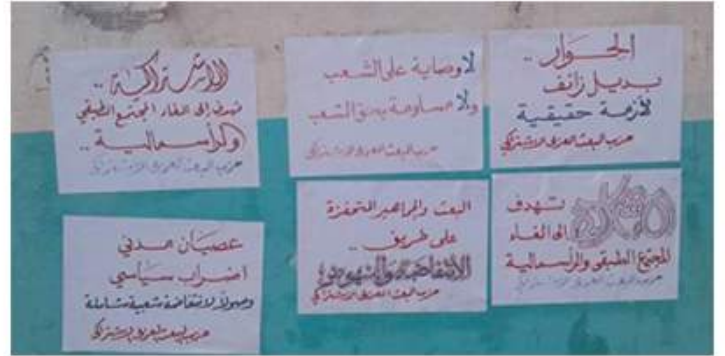 الحوار ..
بديل زائف
لأزمة حقيقية
حزب البعث العربي الاشتراكي
لا وصاية على الشعب
ولا مساومة بحق الشعب
حزب البعث العربي الاشتراكي
الاشتراكية ..
تهدف إلى الغاء المجتمع الطبقي
والرأسمالية ..
حزب البعث العربي الاشتراكي
الاشتراكية تهدف
الى الغاء
المجتمع الطبقي والرأسمالية
حزب البعث العربي الاشتراكي
البعث والجماهير المتحفزة
على طريق ..
الانتفاضة والنهوض
حزب البعث العربي الاشتراكي
عصيان مدني
اضراب سياسي
وصولاً لانتفاضة شعبية شاملة
حزب البعث العربي الاشتراكي